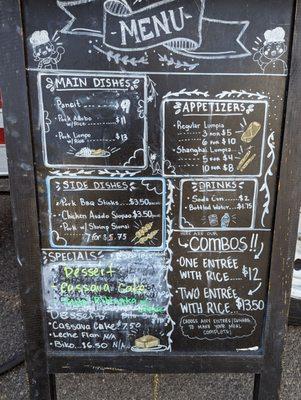 MENU
MAIN DISHES
Pancit
Pork Adobo
w/ Rice $11
Pork Lumpo
w/ Rice $13
APPETIZERS
Regular Lumpia
3 for $5
6 for $10
Shanghai Lumpia
5 for $4
10 for $8
SIDE DISHES
Pork BBQ Sticks ...$3.50
Chicken Asado Siopao $3.50
Pork w/ Shrimp Siumai
7 for $5.75
DRINKS
Soda Can ... $2
Bottled Water ... $1.75
SPECIALS
Dessert
Cassava Cake
Desserts
Cassava Cake 7.50
Leche Flan N/A
Biko $6.50 N/A
COMBOS!!
ONE ENTRÉE
WITH RICE... $12
TWO ENTRÉE
WITH RICE... $13.50
CHOOSE ANY ENTRÉES
TO MAKE YOUR MEAL